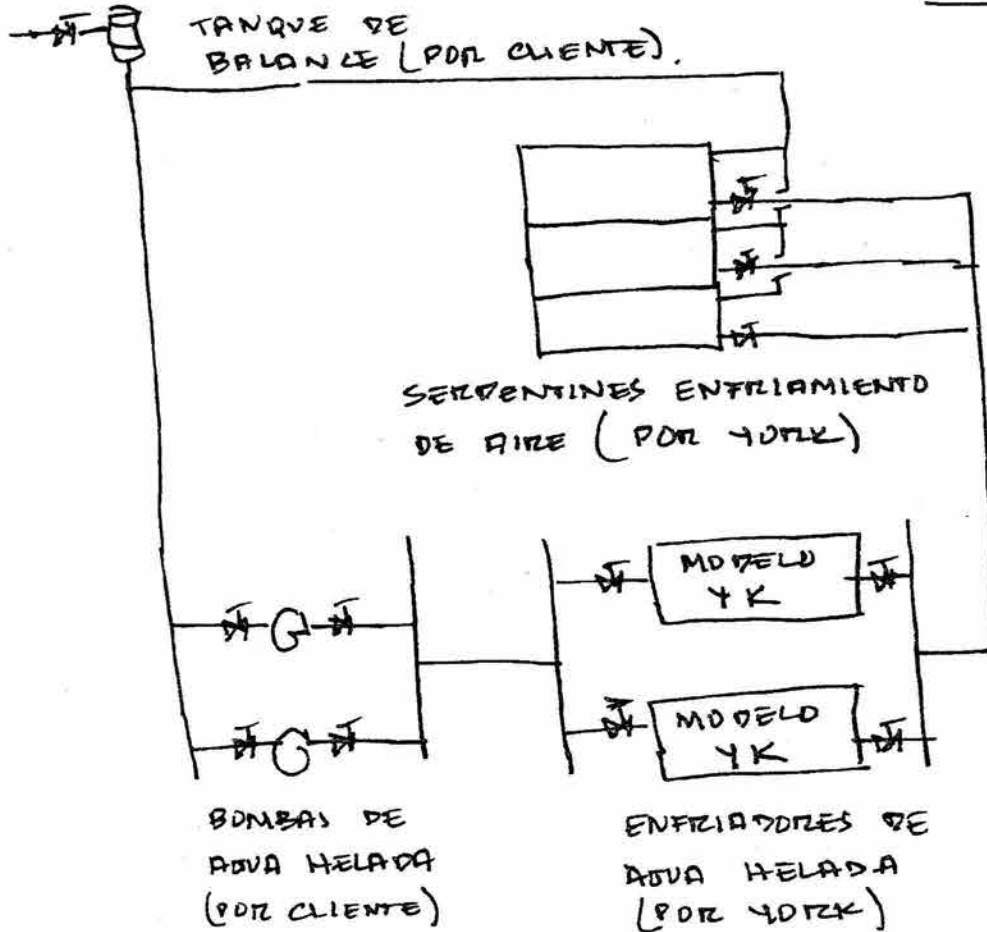 TANQUE DE
BALANCE (POR CLIENTE).
SERPENTINES ENFRIAMIENTO
DE AIRE (POR YORK)
MODELO
YK
MODELO
YK
BOMBAS DE
AGUA HELADA
(POR CLIENTE)
ENFRIADORES DE
AGUA HELADA
(POR YORK)